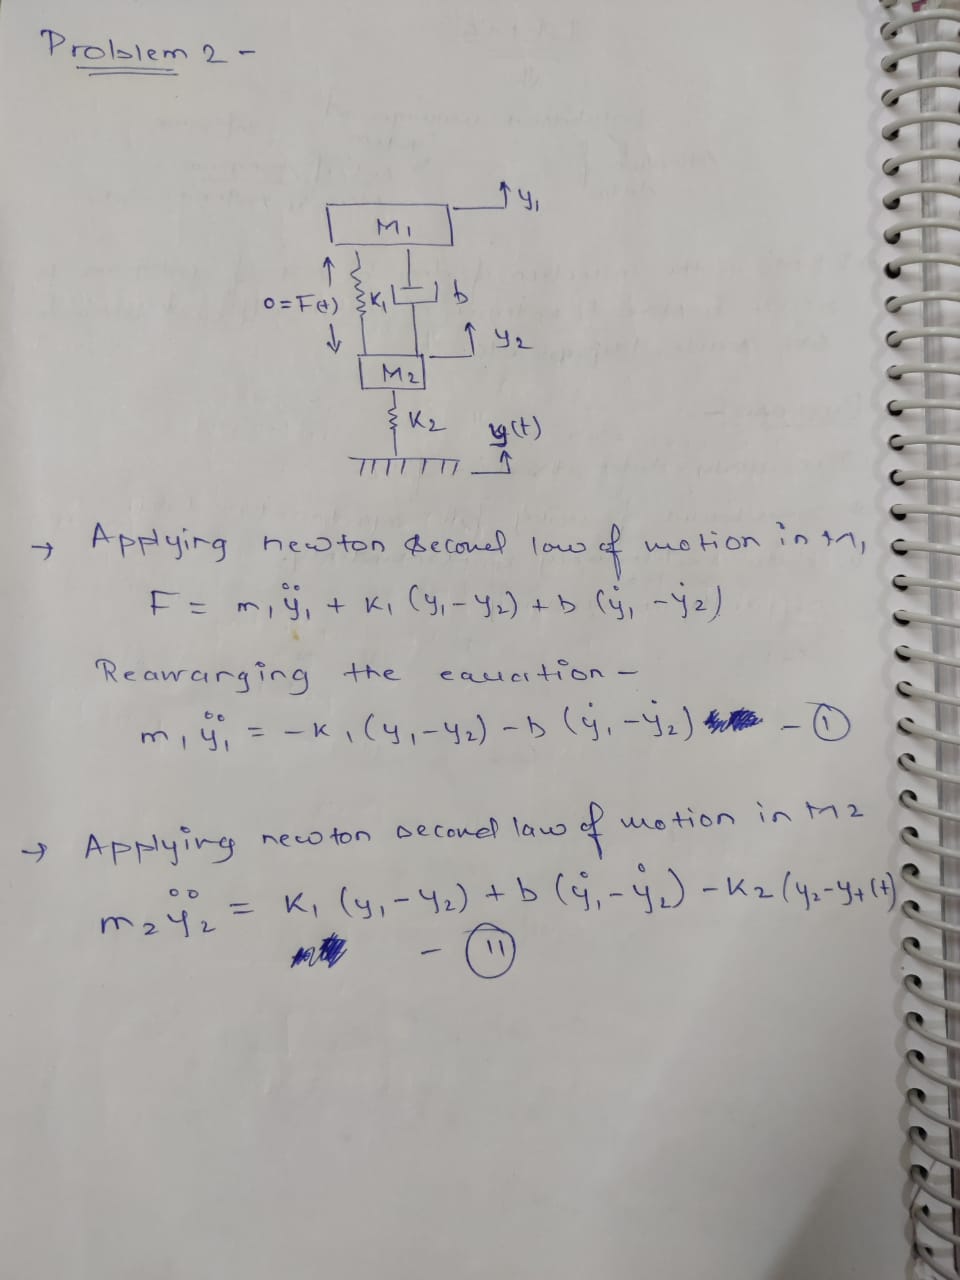 Problem 2 -
y₁
M₁
0=F(t) K₁ b
y₂
M₂
K₂ y(t)
→ Applying newton second law of motion in M₁
F = m₁ÿ₁ + K₁ (y₁-y₂) + b (ẏ₁ -ẏ₂)
Rearranging the equation -
m₁ÿ₁ = -K₁(y₁-y₂) - b (ẏ₁-ẏ₂) - ①
→ Applying newton second law of motion in M2
m₂ÿ₂ = K₁ (y₁-y₂) + b (ẏ₁-ẏ₂) - K₂ (y₂-y₊(t))
- ⑪